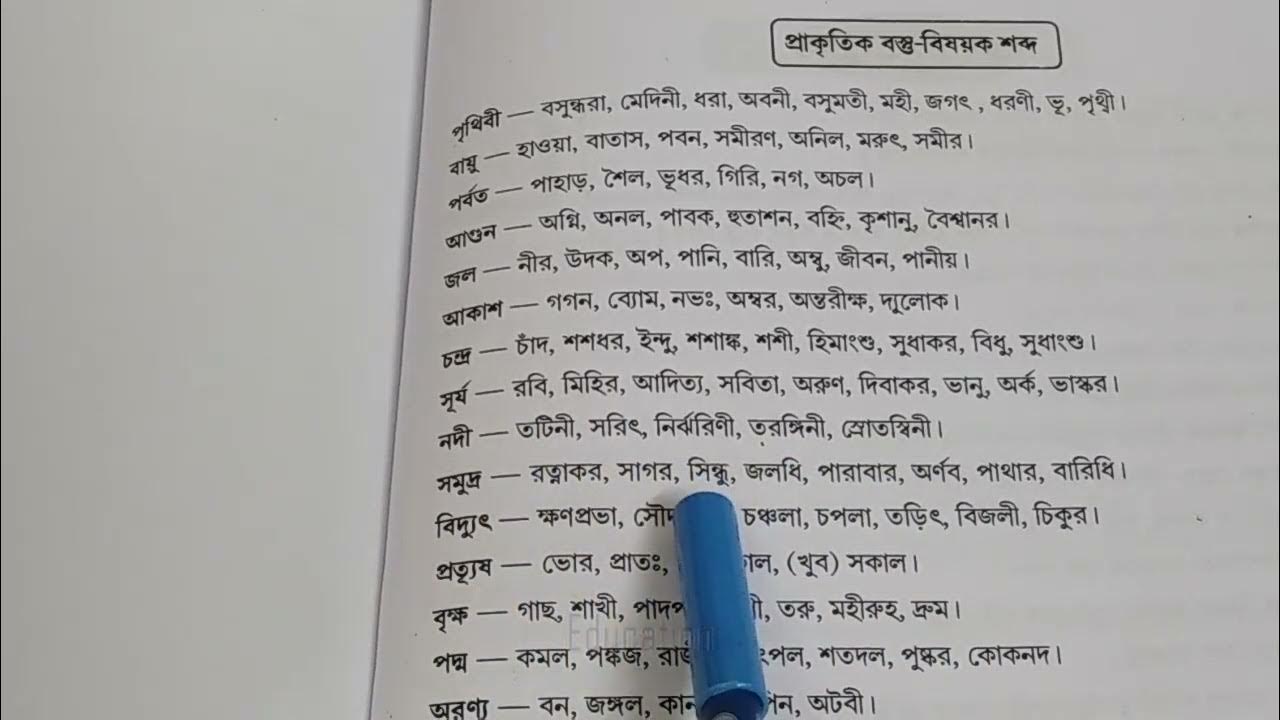 প্রাকৃতিক বস্তু-বিষয়ক শব্দ
পৃথিবী — বসুন্ধরা, মেদিনী, ধরা, অবনী, বসুমতী, মহী, জগৎ , ধরণী, ভূ, পৃথ্বী।
বায়ু — হাওয়া, বাতাস, পবন, সমীরণ, অনিল, মরুৎ, সমীর।
পর্বত — পাহাড়, শৈল, ভূধর, গিরি, নগ, অচল।
আগুন — অগ্নি, অনল, পাবক, হুতাশন, বহ্নি, কৃশানু, বৈশ্বানর।
জল — নীর, উদক, অপ, পানি, বারি, অম্বু, জীবন, পানীয়।
আকাশ — গগন, ব্যোম, নভঃ, অম্বর, অন্তরীক্ষ, দ্যুলোক।
চন্দ্র — চাঁদ, শশধর, ইন্দু, শশাঙ্ক, শশী, হিমাংশু, সুধাকর, বিধু, সুধাংশু।
সূর্য — রবি, মিহির, আদিত্য, সবিতা, অরুণ, দিবাকর, ভানু, অর্ক, ভাস্কর।
নদী — তটিনী, সরিৎ, নির্ঝরিণী, তরঙ্গিনী, স্রোতস্বিনী।
সমুদ্র — রত্নাকর, সাগর, সিন্ধু, জলধি, পারাবার, অর্ণব, পাথার, বারিধি।
বিদ্যুৎ — ক্ষণপ্রভা, চঞ্চলা, চপলা, তড়িৎ, বিজলী, চিকুর।
প্রত্যুষ — ভোর, প্রাতঃ, (খুব) সকাল।
বৃক্ষ — গাছ, শাখী, তরু, মহীরুহ, দ্রুম।
Education
পদ্ম — কমল, পঙ্কজ, শতদল, পুষ্কর, কোকনদ।
অরণ্য — বন, জঙ্গল, অটবী।